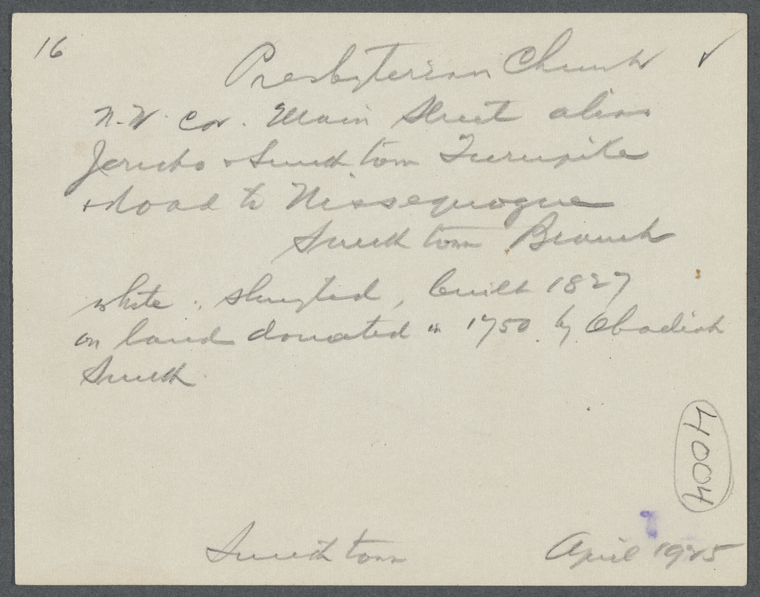 16
Presbyterian Church ✓
N.W. cor. Main Street alias
Jericho & Smithtown Turnpike
& road to Nissequogue
Smithtown Branch
white, shingled, built 1827
on land donated in 1750 by Obadiah
Smith.
4004
Smithtown April 1925